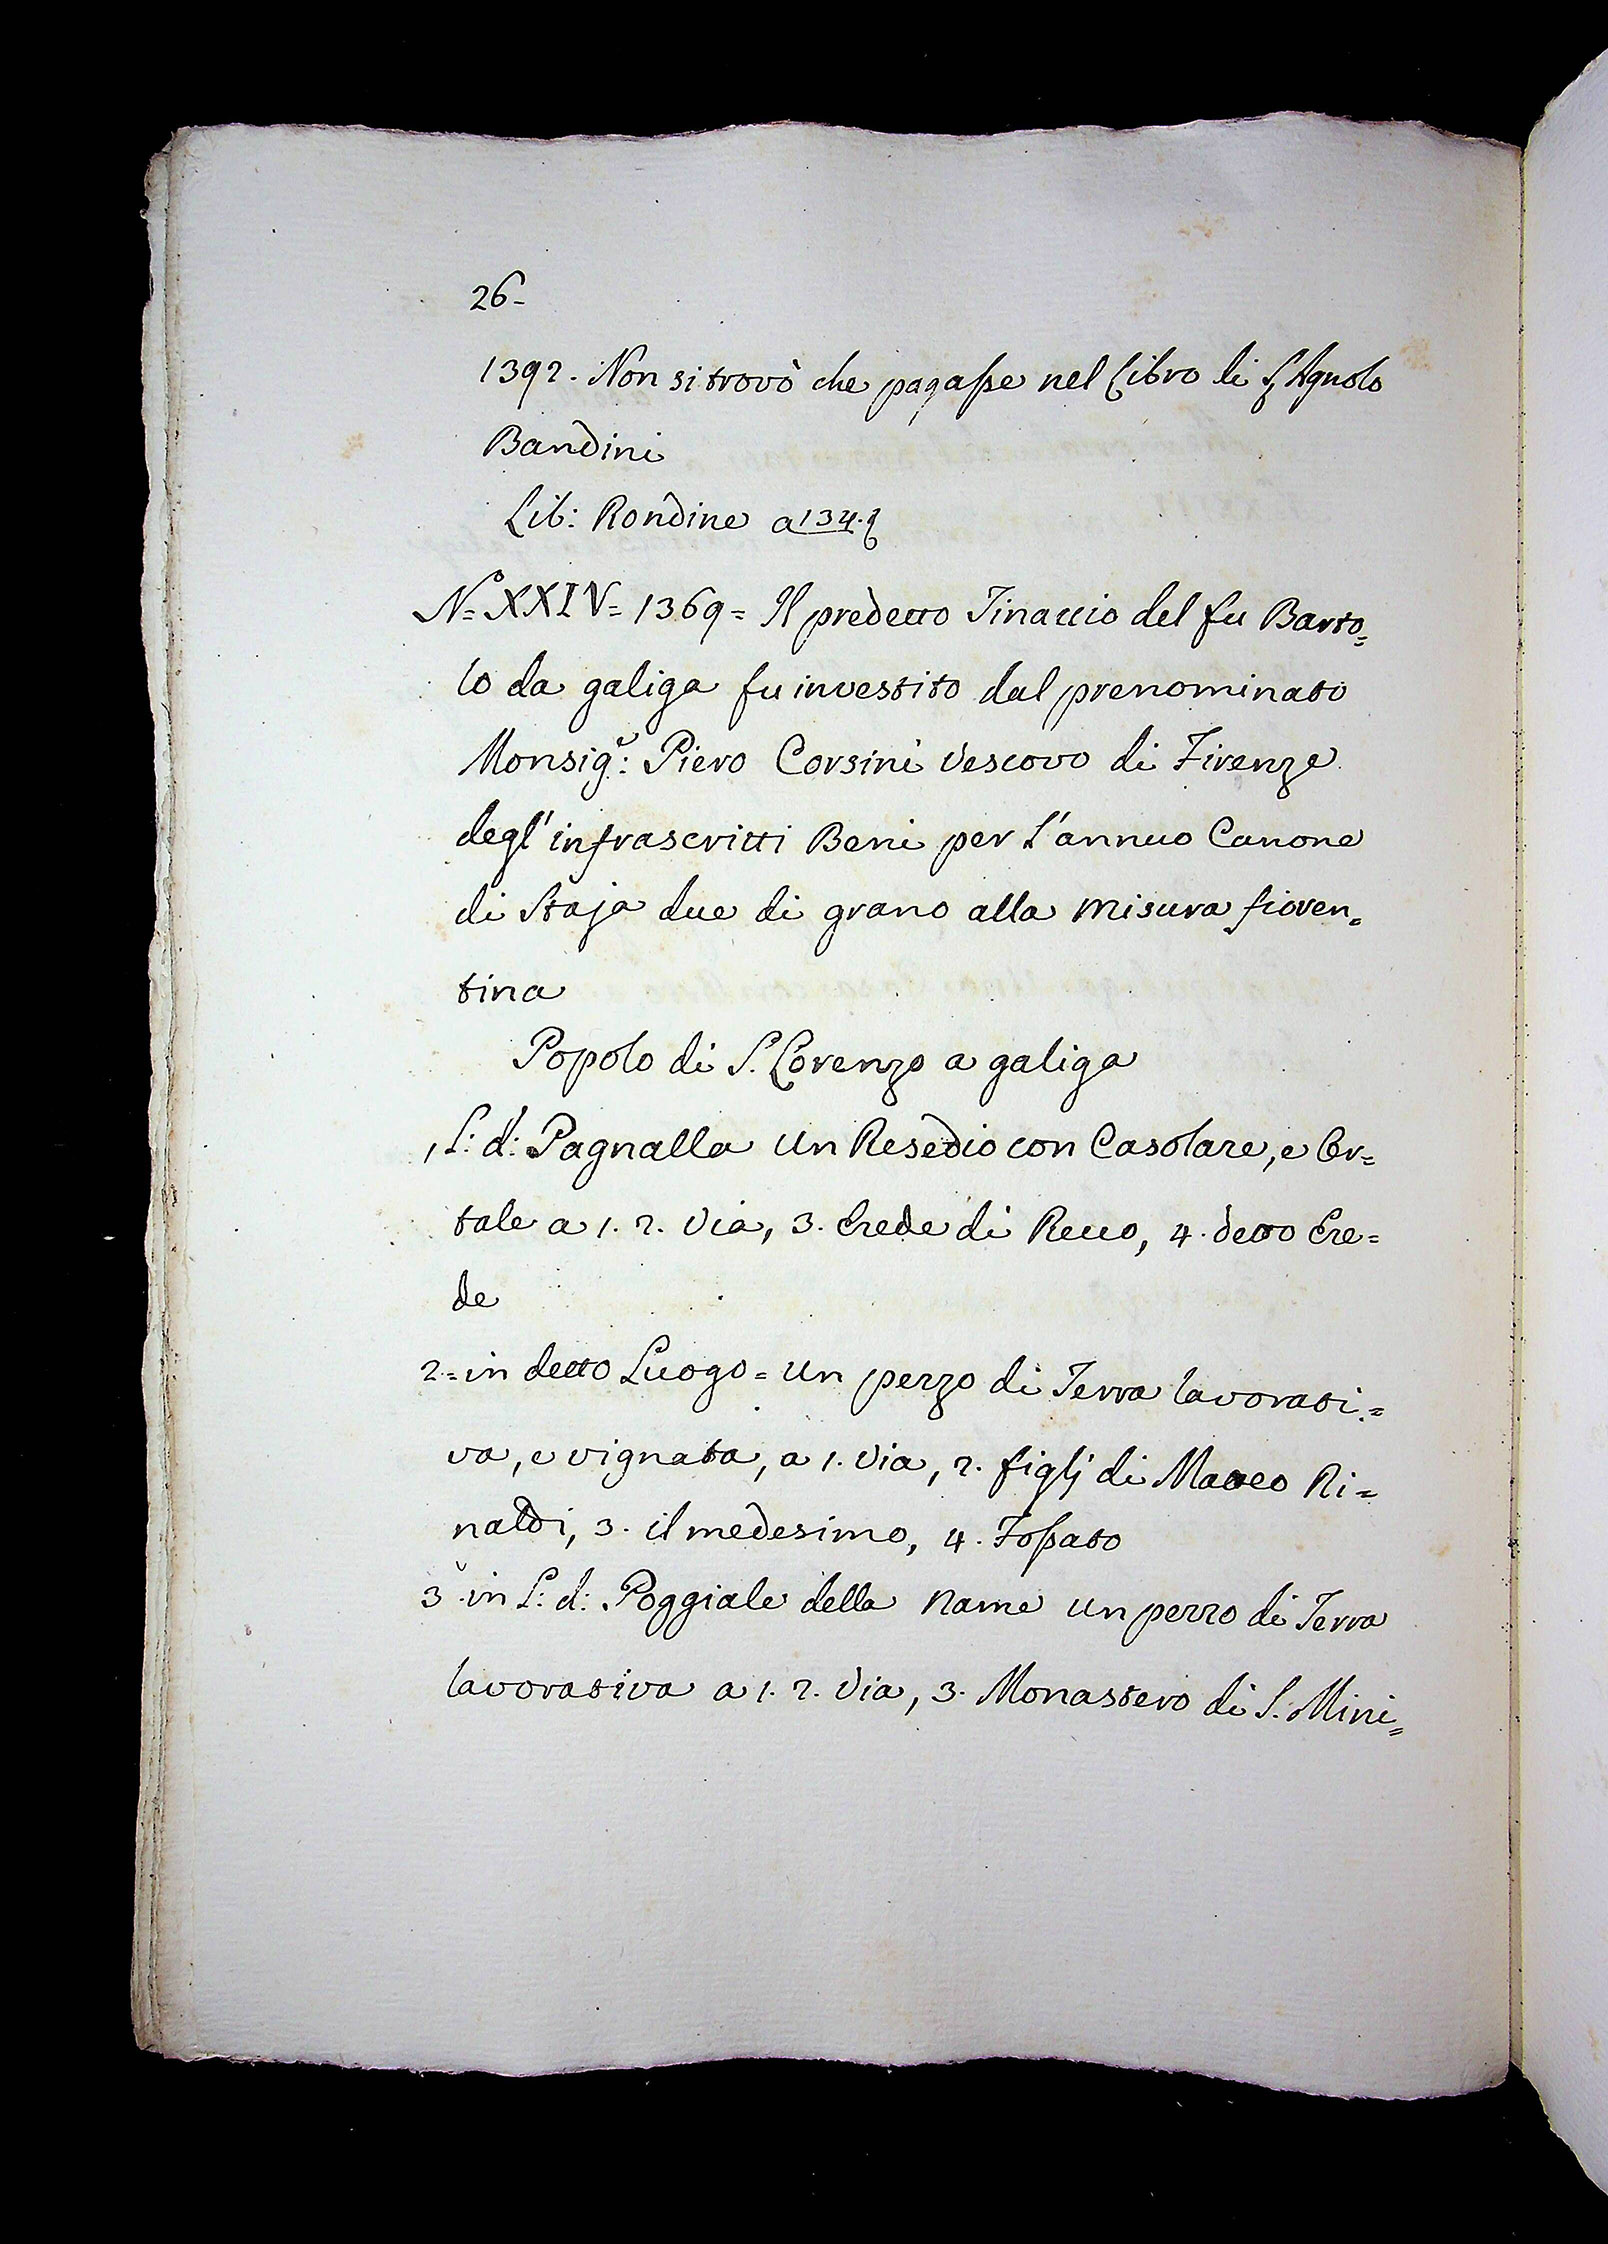 26-
1392. Non si trovò che pagasse nel Libro di S. Agnolo
Bandini
Lib: Rondine a 134.
N.º XXIV= 1369= Il predetto Tinaccio del fu Barto=
lo da galiga fu investito dal prenominato
Monsig.e: Piero Corsini Vescovo di Firenze
degl'infrascritti Beni per l'annuo Canone
di Staja due di grano alla misura fioren=
tina
Popolo di S. Lorenzo a galiga
1 L: d: Pagnalla un Resedio con Casolare, e Or=
tale a 1. 2. Via, 3. Erede di Recco, 4. detto Ere=
de
2= in detto Luogo= un pezzo di Terra lavorati=
va, e vignata, a 1. Via, 2. figlj di Matteo Ri=
naldi, 3. il medesimo, 4. Fossato
3 in L: d: Poggiale della Name un pezzo di Terra
lavorativa a 1. 2. Via, 3. Monastero di S. Mini=